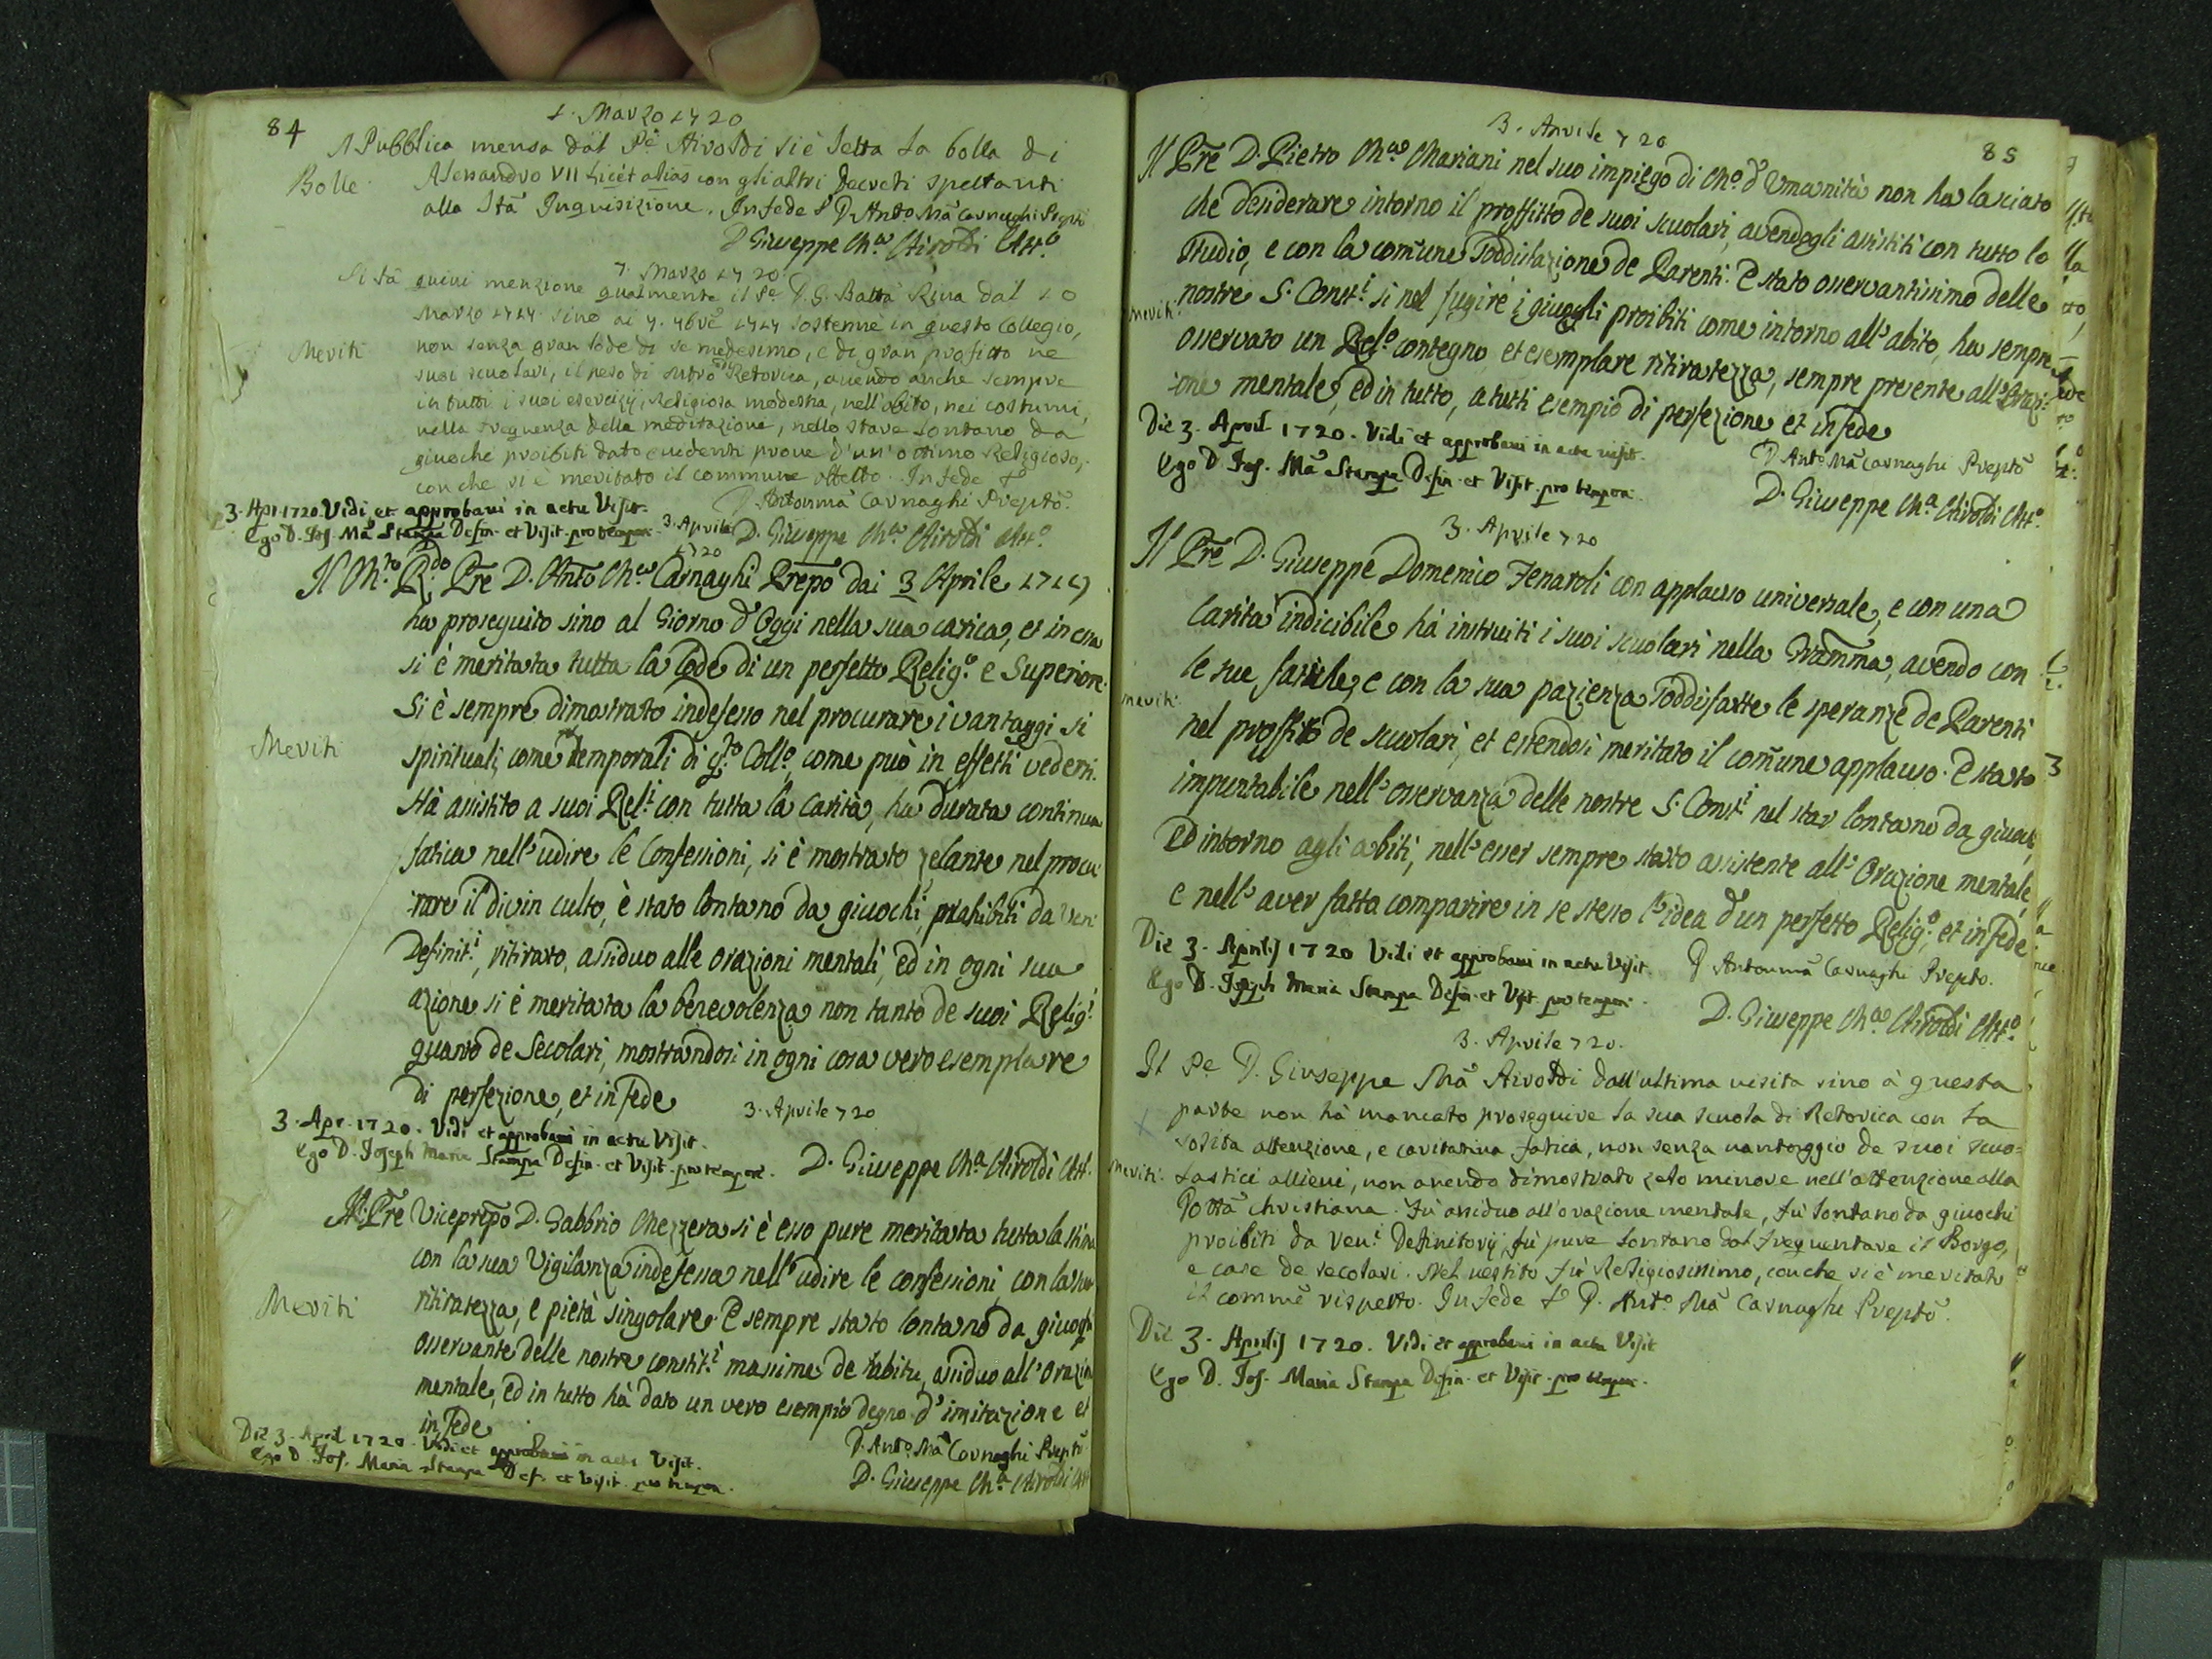 84
1. Marzo 1720
A Pubblica mensa dal Pe Airoldi si è letta la bolla di
Bolle Alessandro VII Licet alias con gli altri Decreti spettanti
alla Sta Inquisizione. In fede D. Anto Ma Carnaghi Prepto
D Giuseppe Ma Airoldi Atto
7. Marzo 1720
Si fa quivi menzione qualmente il Pe D. G. Batta Riva dal 10
Marzo 1717 sino ai 9bre 1717 sostenne in questo Collegio,
Meriti non senza gran lode di se medesimo, e di gran profitto ne
suoi scuolari, il peso di Retorica, avendo anche sempre
in tutti i suoi esercizij, Religiosa modestia, nell'abito, nei costumi,
nella frequenza della meditazione, nello stare lontano da
giuochi proibiti dato evidenti prove d'un'ottimo Religioso,
con che si è meritato il commune affetto. In fede
D. Antonmа Carnaghi Prepto
3. Apr. 1720. Vidi et approbavi in actu Visit.
Ego D. Jos. Ma Stampa Defin. et Visit. pro tempore
3. Aprile 1720
D. Giuseppe Ma Airoldi Atto
Il M.to R.do Pre D. Anto Ma Carnaghi Prepo dai 3 Aprile 1719
ha proseguito sino al Giorno d'Oggi nella sua carica, et in essa
si è meritata tutta la lode di un perfetto Relig.o e Superiore.
Si è sempre dimostrato indefesso nel procurare i vantaggi si
Meriti spirituali, come temporali di q.to Coll.o, come può in effetti vedersi.
Ha assistito a suoi Rel.i con tutta la carità, ha durata continua
fatica nell'udire le Confessioni, si è mostrato zelante nel procu
rare il divin culto, è stato lontano da giuochi, prohibiti da Ven.
Definit.i, ritirato, assiduo alle orazioni mentali, ed in ogni sua
azione si è meritata la benevolenza non tanto de suoi Relig.i
quanto de Secolari, mostrandosi in ogni cosa vero esemplare
di perfezione, et in fede
3. Aprile 720
3. Apr. 1720. Vidi et approbavi in actu Visit.
Ego D. Joseph Maria Stampa Defin. et Visit. pro tempore.
D. Giuseppe Ma Airoldi Att.
Il Pre Viceprepo D. Gabbrio Mezzera si è esso pure meritata tutta la stima
con la sua Vigilanza indefessa nell'udire le confessioni, con la sua
Meriti ritiratezza, e pietà singolare. E sempre stato lontano da giuochi
osservante delle nostre constit.i massime de habitu, assiduo all'orazion
mentale, ed in tutto hà dato un vero esempio degno d'imitazione et
in fede
Die 3. April 1720. Vidi et approbavi in actu Visit.
Ego D. Jos. Maria Stampa Def. et Visit. pro tempore.
D. Anto Ma Carnaghi Prepto
D. Giuseppe Ma Airoldi Att
85
3. Aprile 720
Il Pre D. Pietro Ma Mariani nel suo impiego di Mo. d'Umanità non ha lasciato
che desiderare intorno il proffitto de suoi scuolari, avendogli assistiti con tutto lo
studio, e con la comune soddisfazione de Parenti. E stato osservantissimo delle
meriti nostre S. Const.i si nel fugire i giuochi proibiti come intorno all'abito, ha sempre
osservato un Rel.o contegno, et esemplare ritiratezza, sempre presente all'Orazi
one mentale, ed in tutto, a tutti esempio di perfezione et in fede
Die 3. April 1720. Vidi et approbavi in actu visit.
Ego D. Jos. Ma Stampa Defin. et Visit. pro tempore.
D Anto Ma Carnaghi Prepto
D. Giuseppe Ma Airoldi Atto
3. Aprile 720
Il Pre D. Giuseppe Domenico Fenaroli con applauso universale, e con una
carità indicibile hà instruiti i suoi scuolari nella Gramma, avendo con
le sue fatiche, e con la sua pazienza soddisfatte le speranze de Parenti
meriti nel proffitto de scuolari, et essendosi meritato il comune applauso. E stato
impuntabile nell'osservanza delle nostre S. Const.i nel star lontano da giuochi,
ed intorno agli abiti, nell'esser sempre stato assistente all'Orazione mentale,
e nell'aver fatta comparire in se stesso l'idea d'un perfetto Relig.o, et in fede
Die 3. Aprilis 1720 Vidi et approbavi in actu Visit.
Ego D. Joseph Maria Stampa Defin. et Visit. pro tempore.
D Antonma Carnaghi Prepto.
D. Giuseppe Ma Airoldi Atto
3. Aprile 720.
Il Pe D. Giuseppe Ma Airoldi dall'ultima visita sino à questa
parte non hà mancato proseguire la sua scuola di Retorica con la
solita attenzione, e caritativa fatica, non senza vantaggio de suoi scuo=
meriti lastici allievi, non avendo dimostrato zelo minore nell'attenzione alla
Dottа christiana. Fù assiduo all'orazione mentale, fù lontano da giuochi
proibiti da Ven.i Definitorij, fù pure lontano dal frequentare il Borgo,
e case de secolari. Nel vestito fù Religiosissimo, con che si è meritato
il comme rispetto. In fede D. Anto Ma Carnaghi Prepto.
Die 3. Aprilis 1720. Vidi et approbavi in actu Visit
Ego D. Jos. Maria Stampa Defin. et Visit. pro tempore.